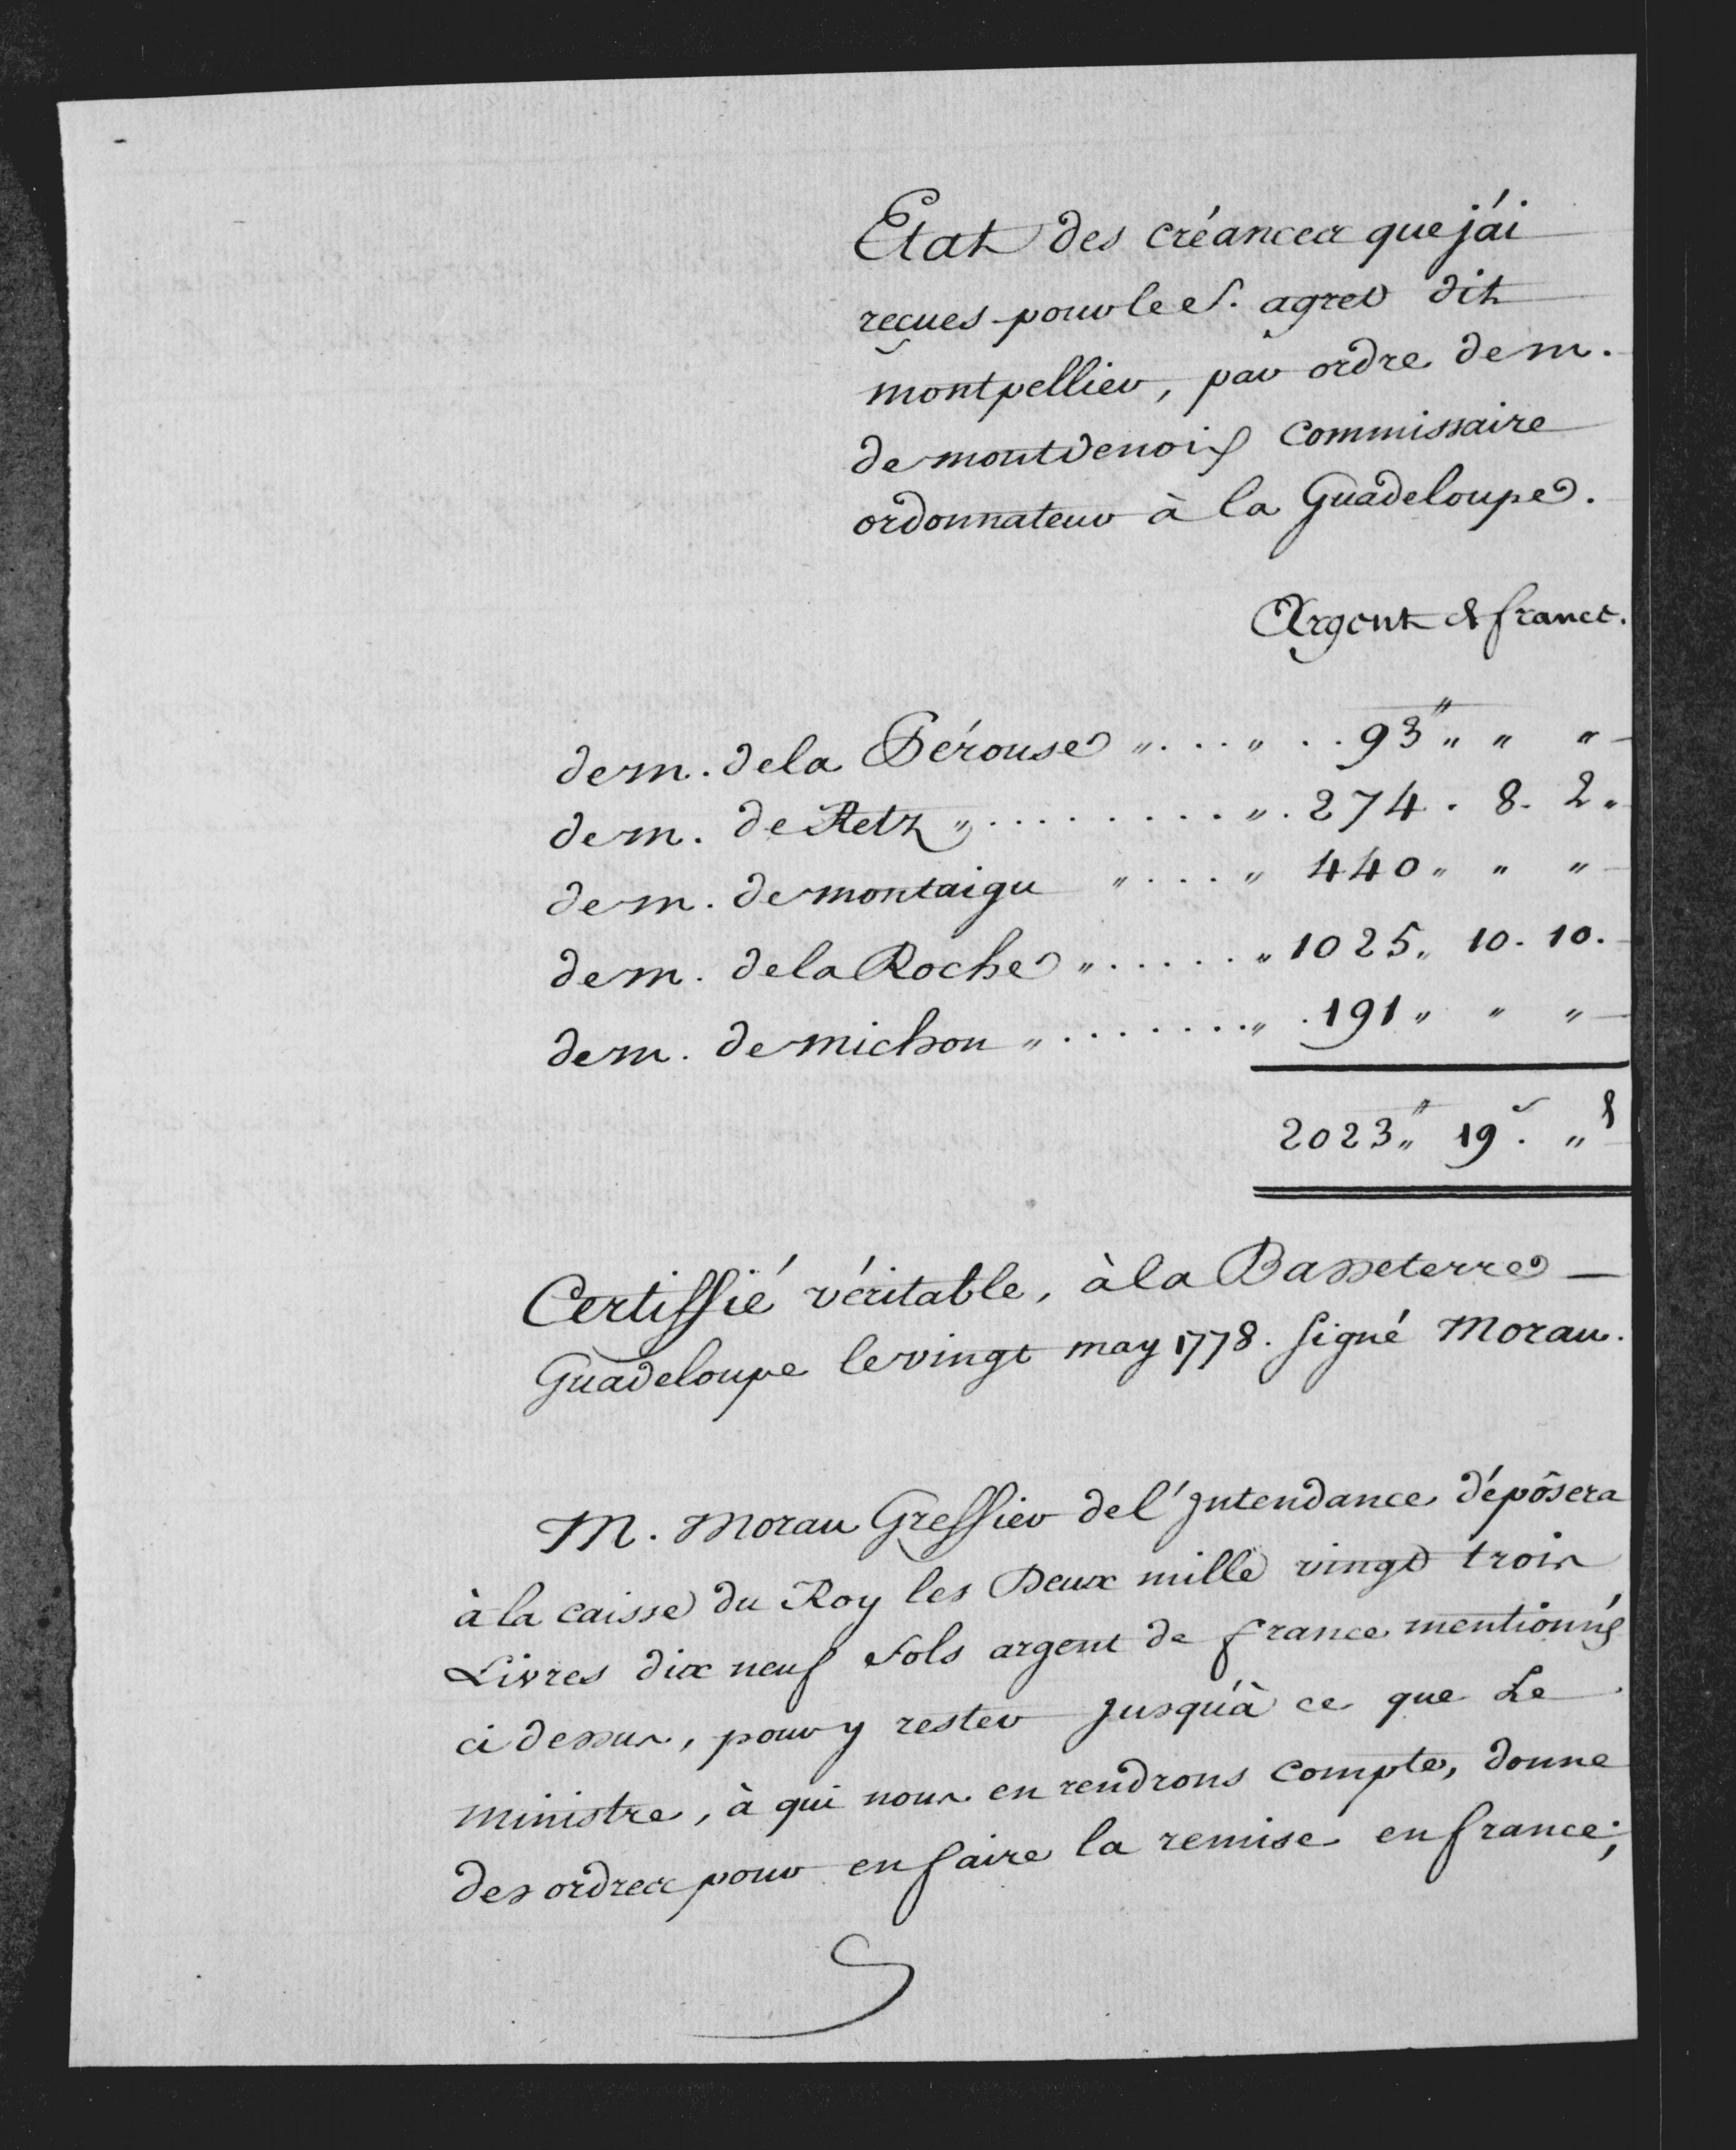 Etat des créances que j'ai
reçues pour le S. agret dit
montpellier, par ordre de m.
de montdenoix Commissaire
ordonnateur à la Guadeloupe.
Argent de france.
de m. de la Pérouse „ . . . „ . . 93# „ „ „
de m. de Retz „ . . . . . . . . „ . 274 . 8 . 2 „
de m. de montaigu „ . . . „ 440 „ „ „
de m. de la Roche „ . . . . . „ 1025 „ 10 . 10 .
de m. de michon „ . . . . . . . „ . 191 „ „ „
2023# 19s . „ d
Certiffié véritable, à la Basseterre —
Guadeloupe le vingt may 1778. signé Morau.
M. Morau Greffier de l'Intendance dépôsera
à la caisse du Roy les Deux mille vingt trois
Livres dix neuf sols argent de france mentionnés
ci dessus, pour y rester jusqu'à ce que Le
ministre, à qui nous en rendrons compte, donne
des ordres pour en faire la remise en france;